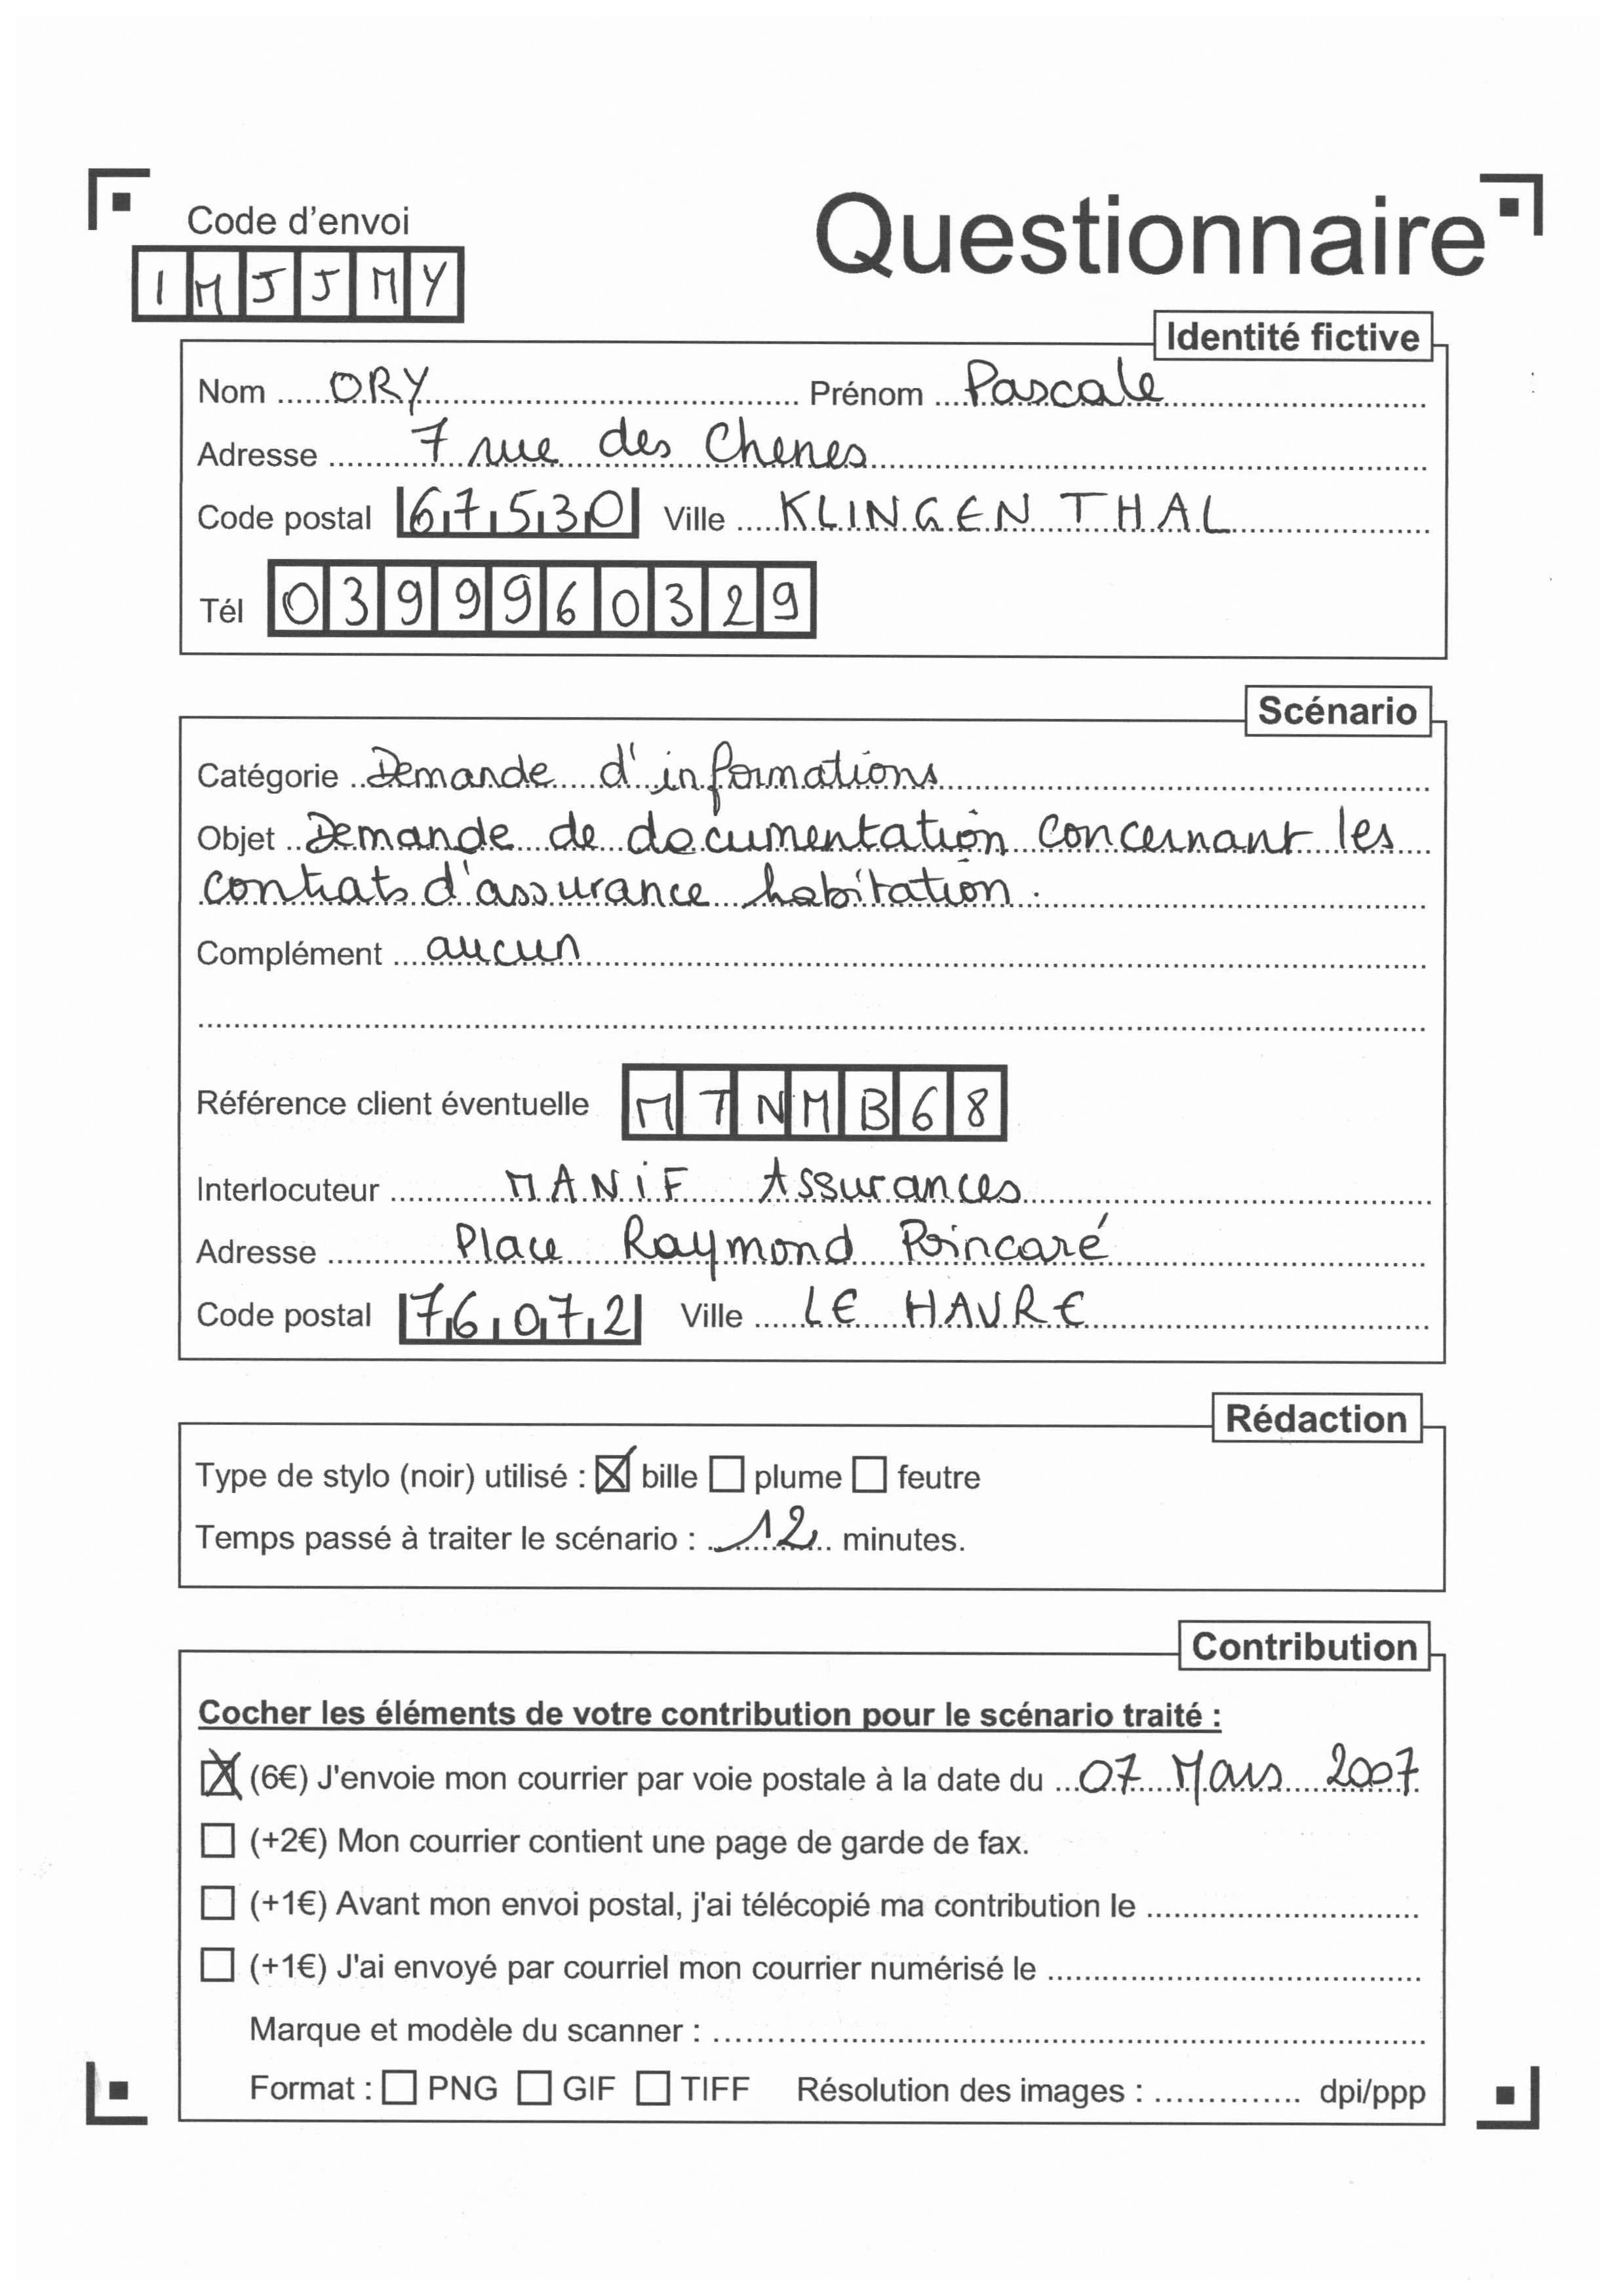 Code d'envoi
Questionnaire
IMJJMY
Identité fictive
Nom ORY Prénom Pascale
Adresse 7 rue des Chenes
Code postal 67530 Ville KLINGENTHAL
Tél 0399960329
Scénario
Catégorie Demande d'informations
Objet Demande de documentation concernant les
contrats d'assurance habitation.
Complément aucun
Référence client éventuelle MTNMB68
Interlocuteur MANiF Assurances
Adresse Place Raymond Poincaré
Code postal 76072 Ville LE HAVRE
Rédaction
Type de stylo (noir) utilisé : ☒ bille ☐ plume ☐ feutre
Temps passé à traiter le scénario : 12 minutes.
Contribution
Cocher les éléments de votre contribution pour le scénario traité :
☒ (6€) J'envoie mon courrier par voie postale à la date du 07 Mars 2007
☐ (+2€) Mon courrier contient une page de garde de fax.
☐ (+1€) Avant mon envoi postal, j'ai télécopié ma contribution le
☐ (+1€) J'ai envoyé par courriel mon courrier numérisé le
Marque et modèle du scanner :
Format : ☐ PNG ☐ GIF ☐ TIFF Résolution des images : dpi/ppp